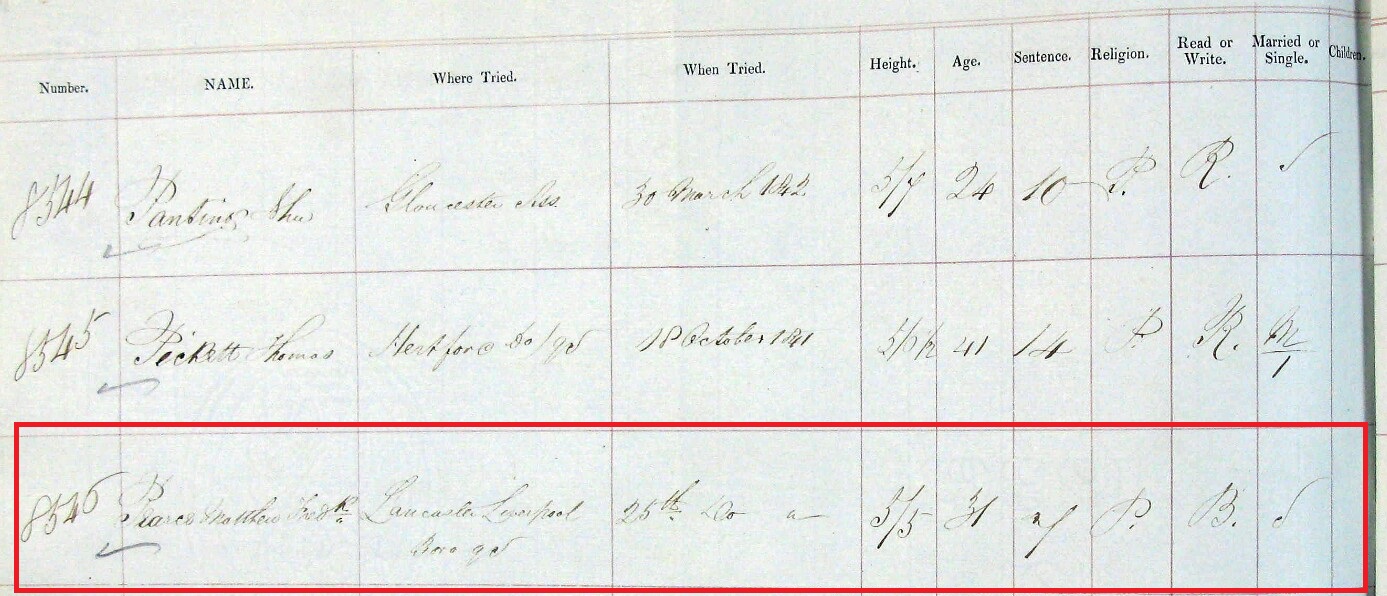 Number. NAME. Where Tried. When Tried. Height. Age. Sentence. Religion. Read or Write. Married or Single. Children.
8544 Gloucester Ass 30 March 1842 5/7 24 10 P. R. S
8545 Peckett Thomas Hertford So/qS 18 October 1841 41 14 P. R. M/1
8546 Pearce Matthew Fredk Lancaster Liverpool 25th Do 5/5 31 7 P. B. S
Boro qS